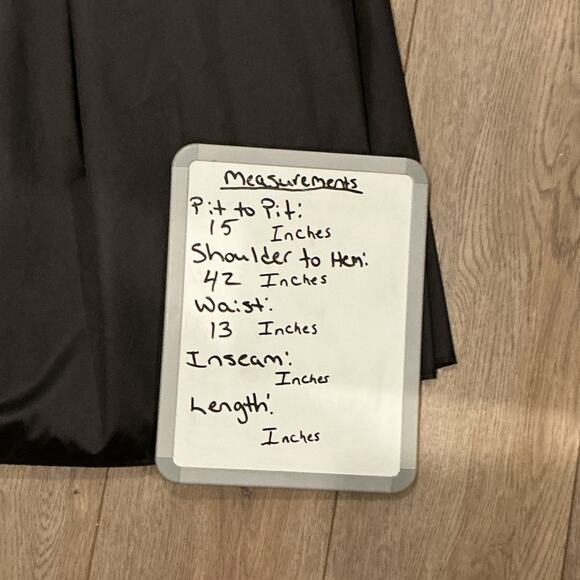 Measurements
Pit to Pit:
15 Inches
Shoulder to Hem:
42 Inches
Waist:
13 Inches
Inseam:
Inches
Length:
Inches